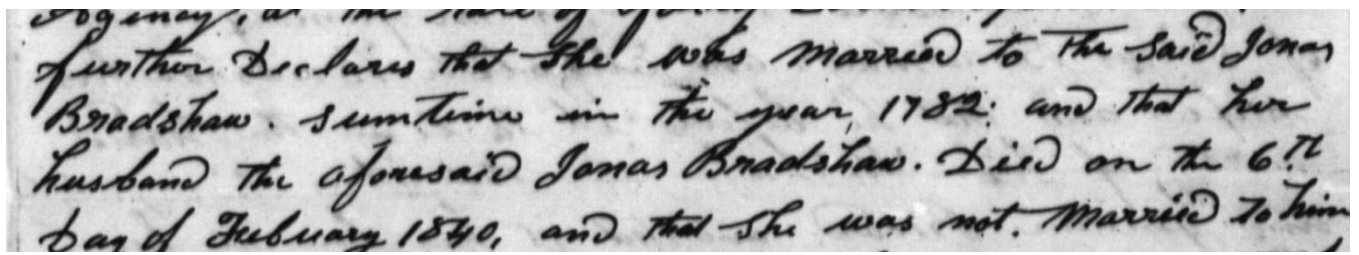 Agency, at the rate of
further Declares that She was Married to The Said Jonas
Bradshaw. Sumtime in the year, 1782. and that her
husband the aforesaid Jonas Bradshaw. Died on the 6th
Day of Febuary 1840, and that She was not. Married to him